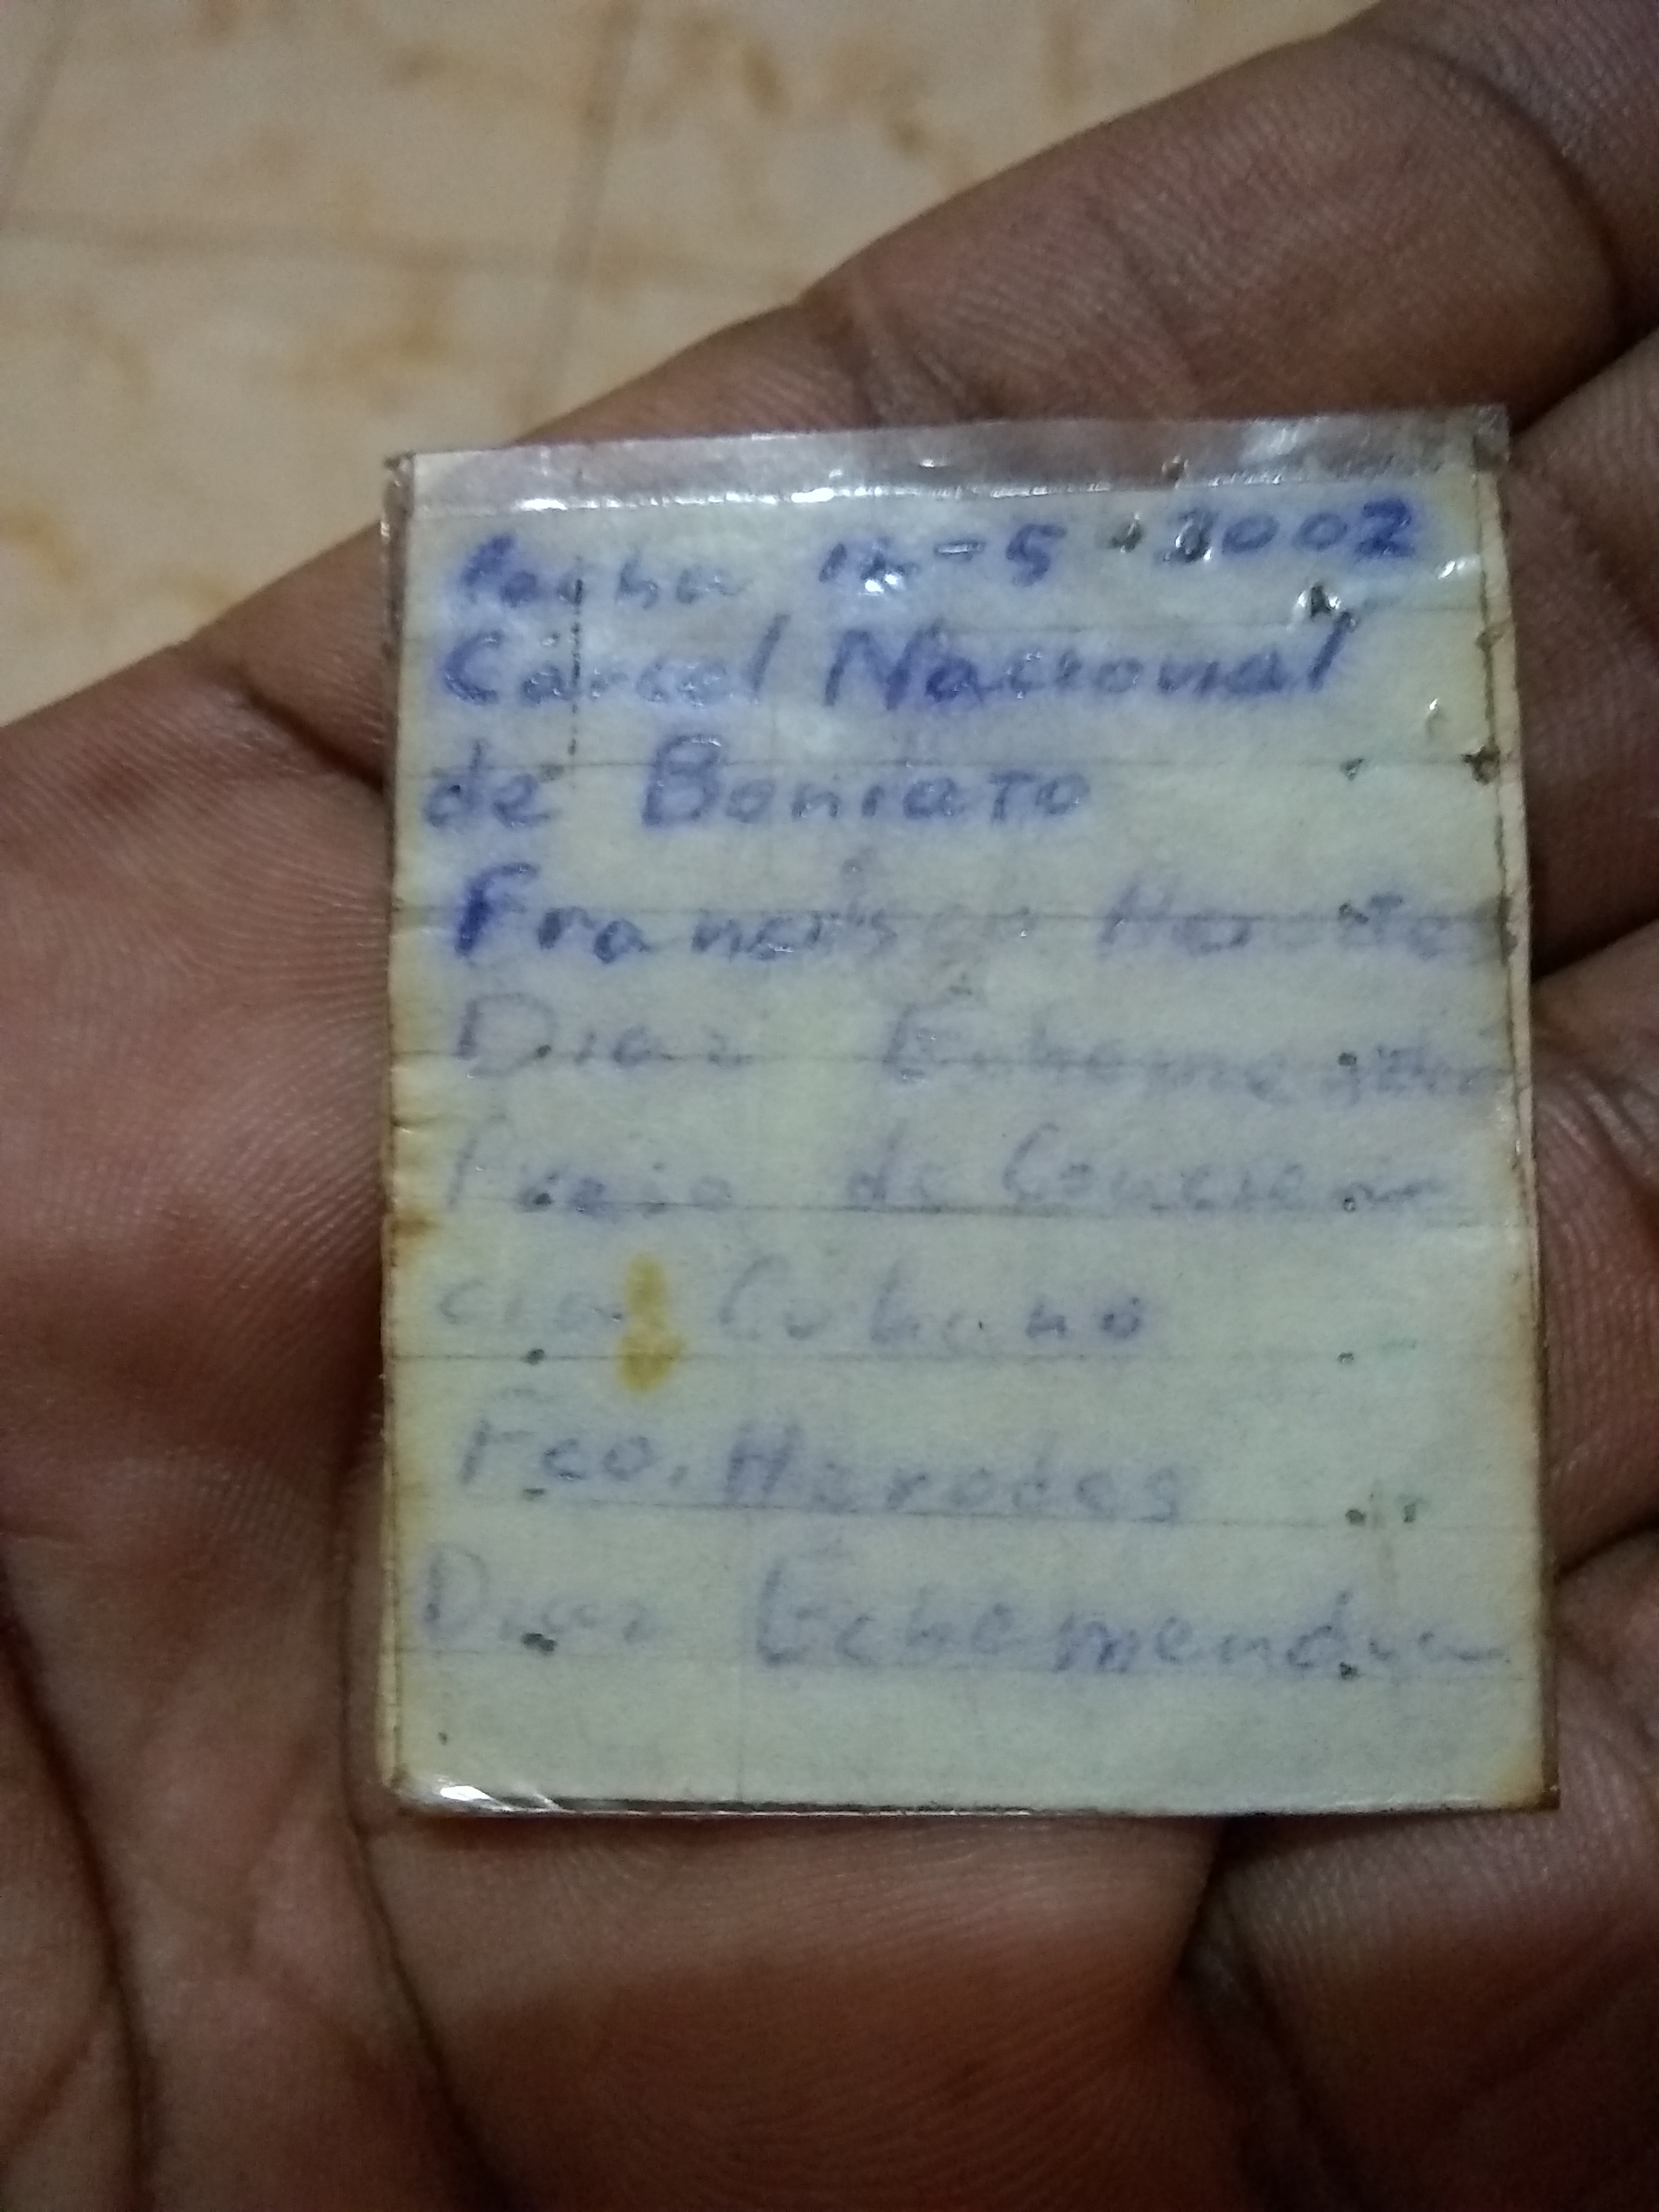 Fecha 12-5-2002
Cárcel Nacional
de Boniato
Francisco Herodes
Diaz Echemendia
Preso de Concien
cia Cubano
Fco. Herodes
Diaz Echemendia